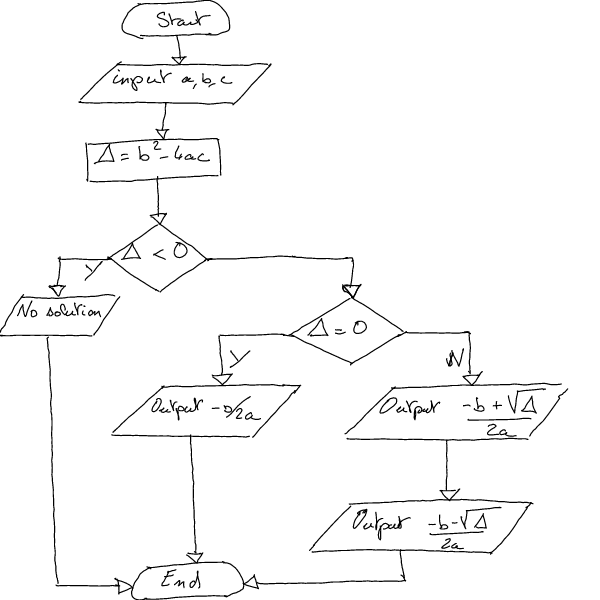 Start
input a, b, c
Δ = b² - 4ac
Δ < 0
Y
No solution
Δ = 0
Y
N
Output -b/2a
Output (-b + √Δ)/2a
Output (-b - √Δ)/2a
End